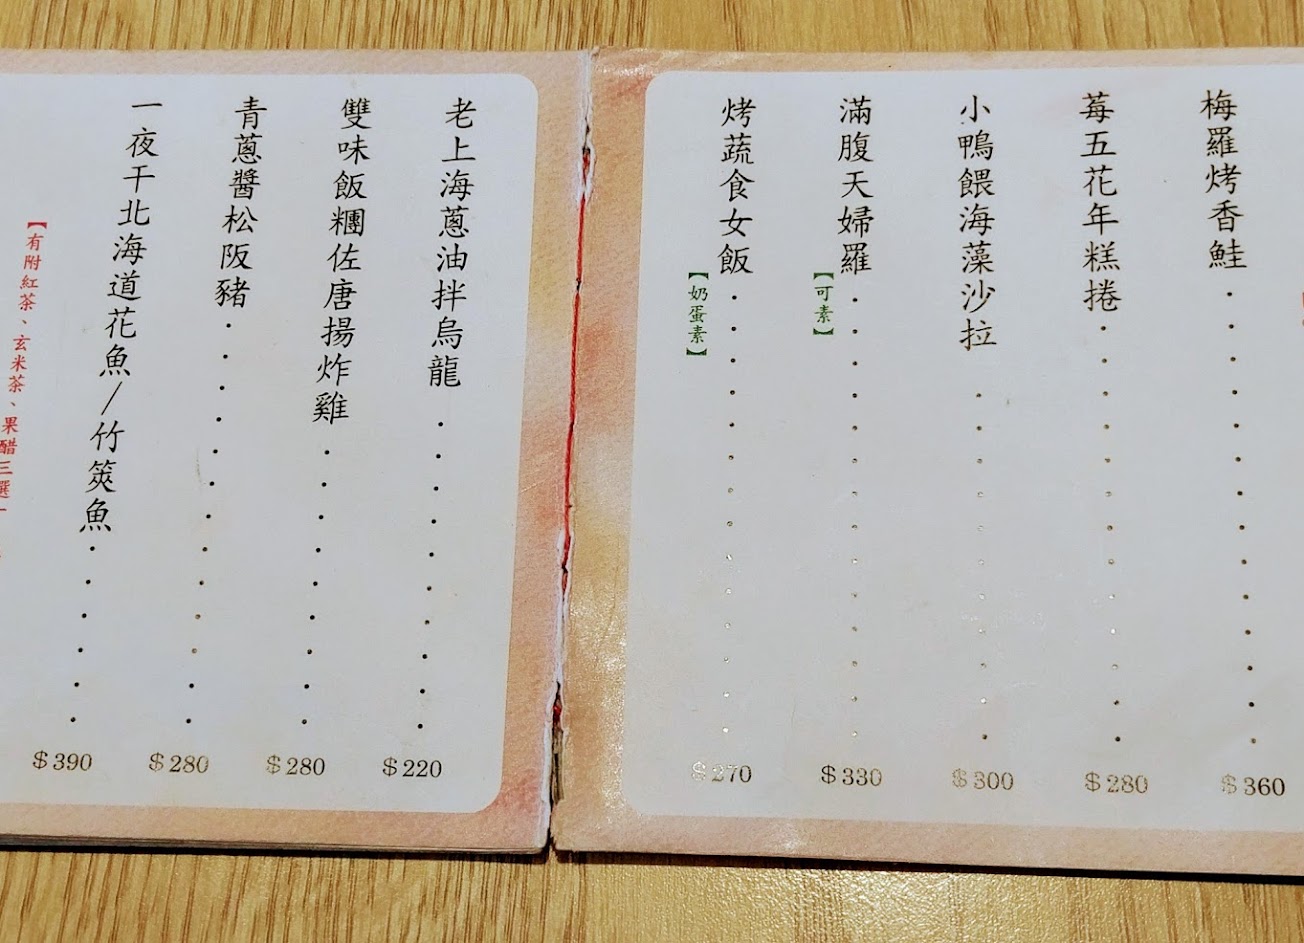 梅羅烤香鮭 $360
莓五花年糕捲 $280
小鴨餵海藻沙拉 $300
滿腹天婦羅 $330
【可素】
烤蔬食女飯 $270
【奶蛋素】
老上海蔥油拌烏龍 $220
雙味飯糰佐唐揚炸雞 $280
青蔥醬松阪豬 $280
一夜干北海道花魚/竹筴魚 $390
【有附紅茶、玄米茶、果醋三選一